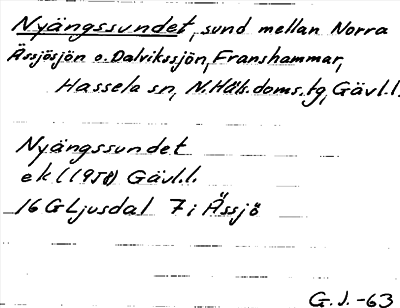 Nyängssundet, sund mellan Norra
Ässjösjön o. Dalvikssjön, Franshammar,
Hassela sn, N.Häls.doms.tg, Gävl.l.
Nyängssundet
ek (1958) Gävl.l.
16 G Ljusdal 7 i Ässjö
G.J.-63